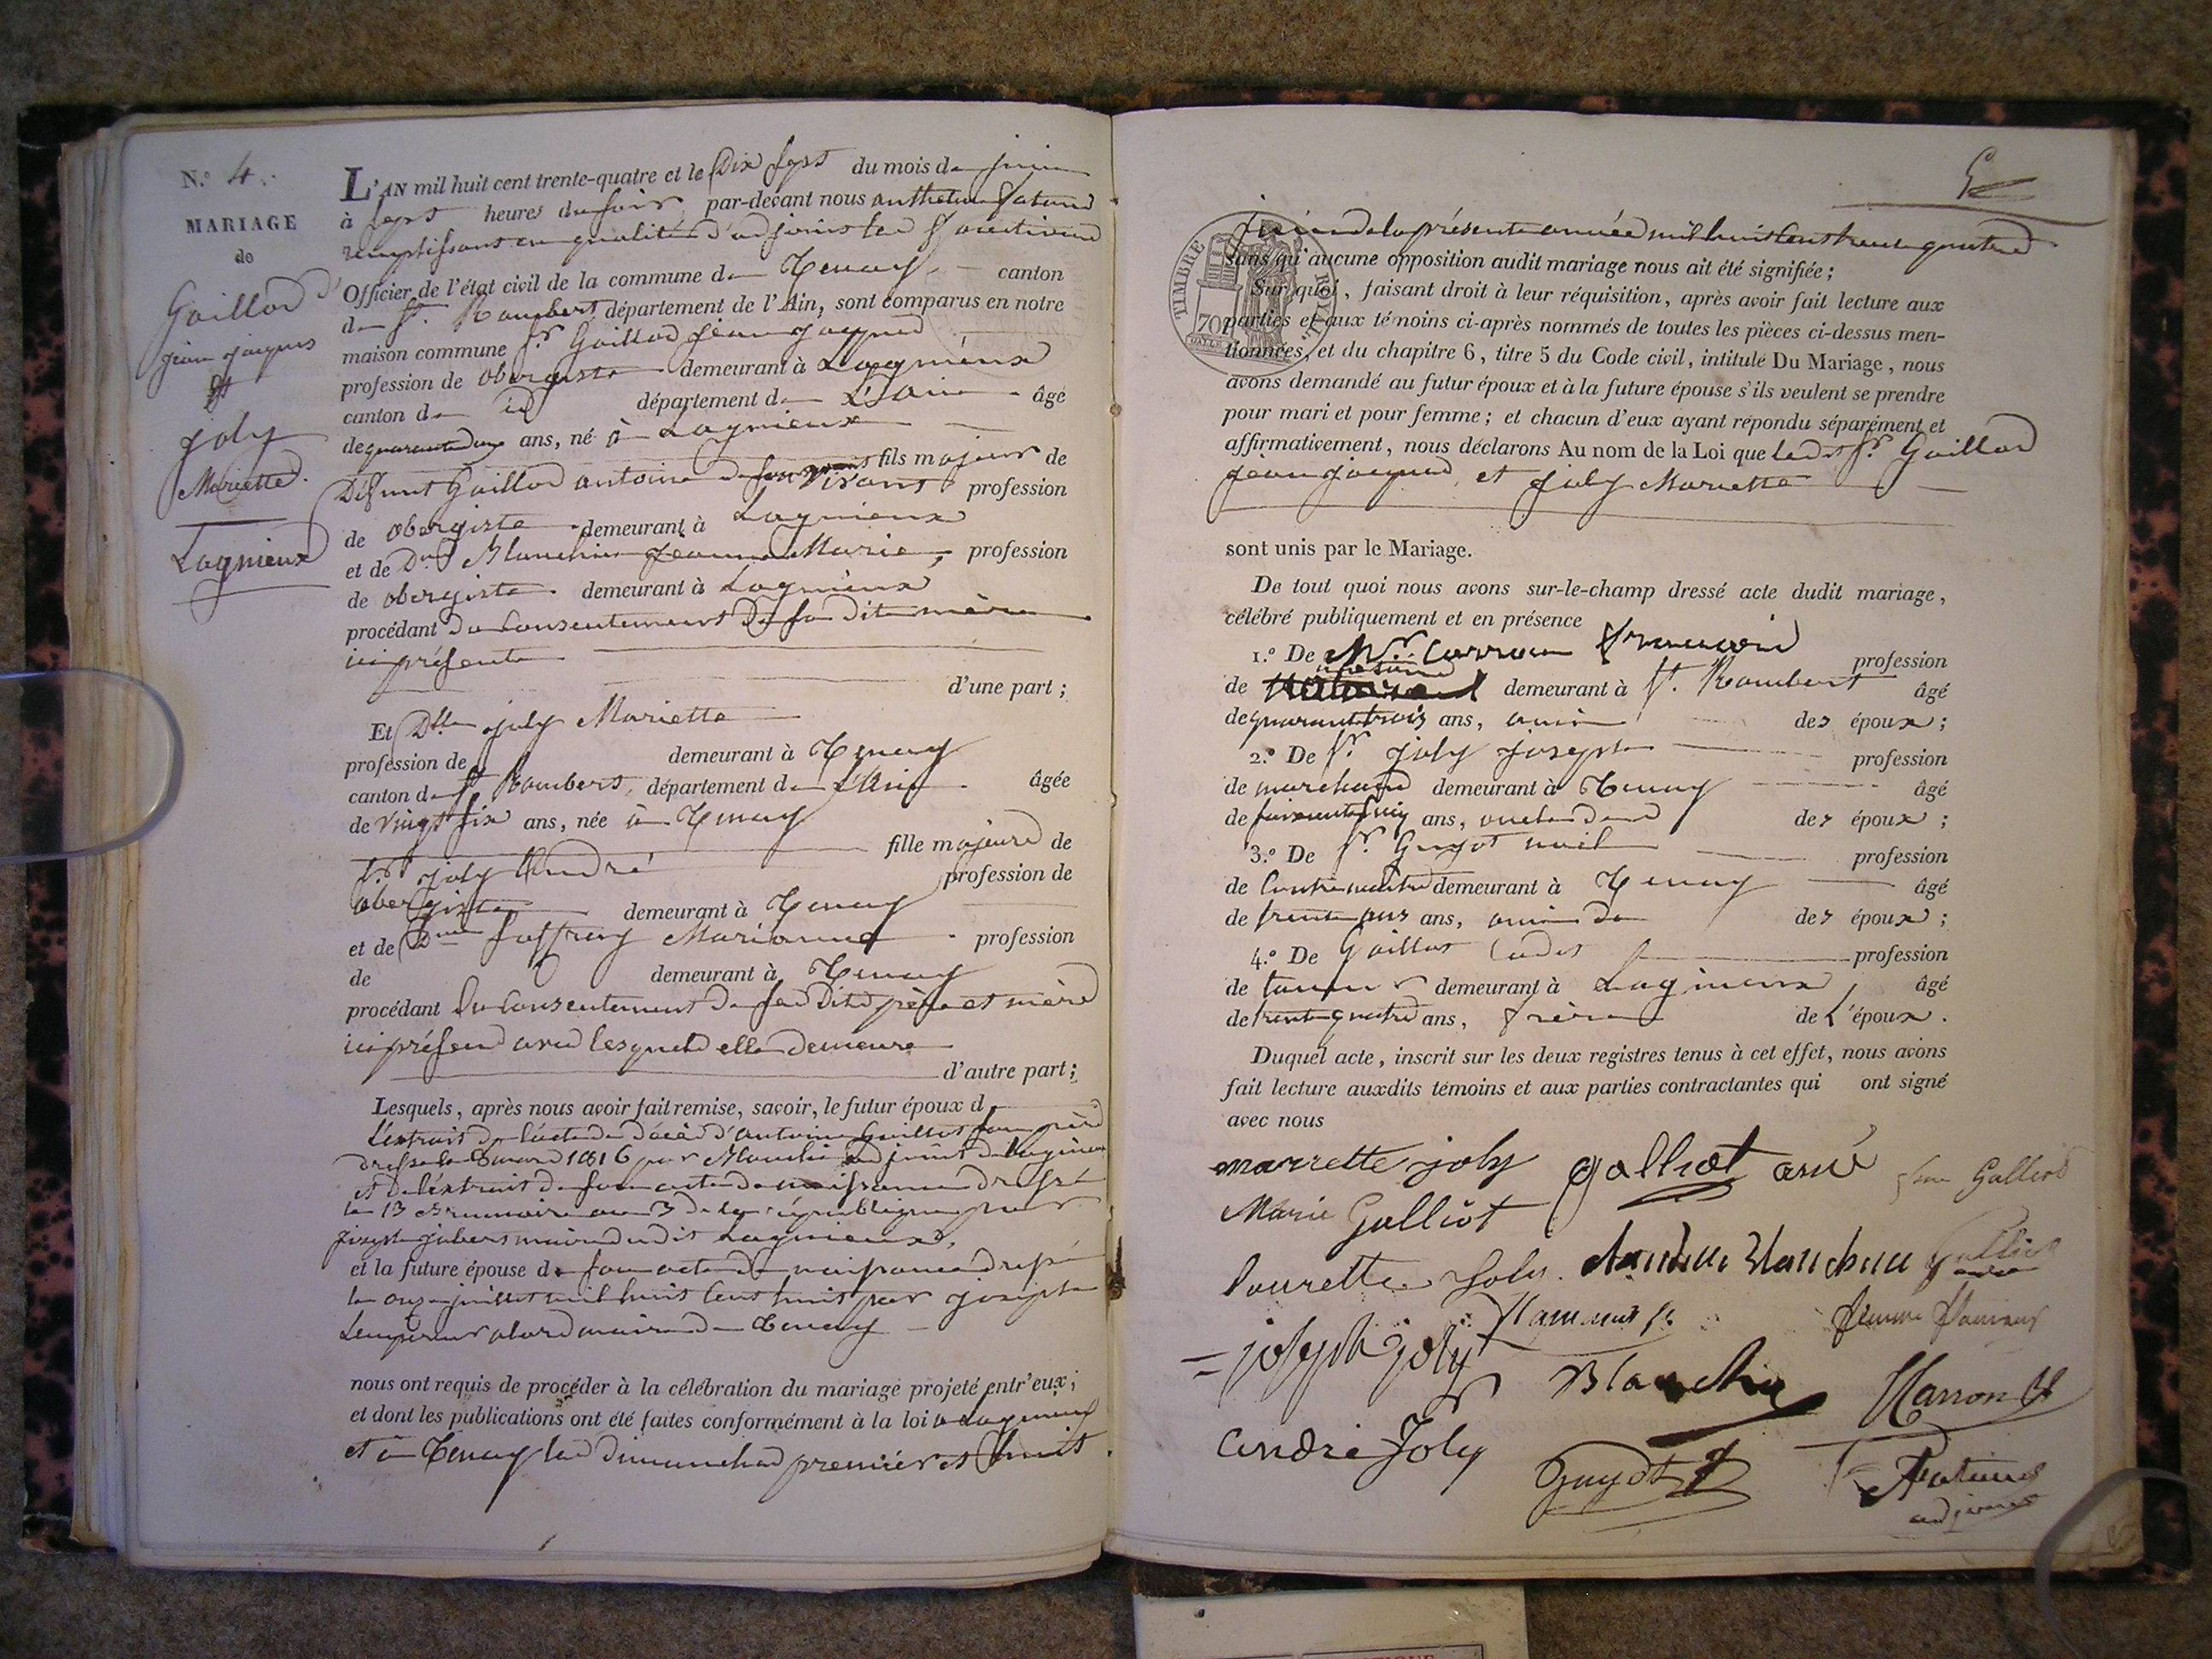 N.º 4.
MARIAGE
de
Gaillod
jean jacques
et
joly
Mariette.
Lagnieux
L'AN mil huit cent trente-quatre et le Dix sept du mois de juin
à sept heures du soir par-devant nous anthelme
remplissant en qualité d'adjoint les fonctions
Officier de l'état civil de la commune de Tenay canton
de St. Rambert, département de l'Ain, sont comparus en notre
maison commune Sr. Gaillod jean jacques
profession de obergiste demeurant à Lagnieux
canton de id département de L'ain âgé
de quarante ans, né à Lagnieux
fils majeur de
Défunt Gaillod antoine vivant profession
de obergiste demeurant à Lagnieux
et de D. Blanchin jeanne Marie, profession
de obergiste demeurant à Lagnieux
procédant du consentement de sa dite mère
ici présente
d'une part ;
Et Dlle joly Mariette
profession de demeurant à Tenay
canton de St Rambert, département de L'Ain âgée
de vingt six ans, née à Tenay
fille majeure de
Sr. joly André profession de
obergiste demeurant à Tenay
et de Dme Marianne profession
de demeurant à Tenay
procédant du consentement de ses dits père et mère
ici présent avec lesquels elle demeure
d'autre part ;
Lesquels, après nous avoir fait remise, savoir, le futur époux d
L'extrait de l'acte de décès d'antoine Guillot son père
dressé le 8 mars 1816 par Blanchin adjoint de Lagnieux
et de l'extrait de son acte de naissance dressé
le 13 Brumaire an 3 de la république par
joseph jubert maire dudit Lagnieux,
et la future épouse de son acte de naissance dressé
le onze juillet mil huit cent huit par joseph
alors maire de Tenay
nous ont requis de procéder à la célébration du mariage projeté entr'eux ;
et dont les publications ont été faites conformément à la loi à Lagnieux
et à Tenay les dimanches premier et huit
5
TIMBRE ROYAL
70
juin de la présente année mil huit cent trente quatre
sans qu'aucune opposition audit mariage nous ait été signifiée ;
Sur quoi, faisant droit à leur réquisition, après avoir fait lecture aux
parties et aux témoins ci-après nommés de toutes les pièces ci-dessus men-
tionnées, et du chapitre 6, titre 5 du Code civil, intitulé Du Mariage, nous
avons demandé au futur époux et à la future épouse s'ils veulent se prendre
pour mari et pour femme ; et chacun d'eux ayant répondu séparément et
affirmativement, nous déclarons Au nom de la Loi que ledit Sr. Gaillod
jean jacques et joly Mariette
sont unis par le Mariage.
De tout quoi nous avons sur-le-champ dressé acte dudit mariage,
célébré publiquement et en présence
1.º De Mr. françois profession
de notaire demeurant à St. Rambert âgé
de quarante trois ans, ami des époux ;
2.º De Sr. joly joseph profession
de marchand demeurant à Tenay âgé
de ans, oncle des époux ;
3.º De Sr. Guyot noël profession
de contre maitre demeurant à Tenay âgé
de trente ans, ami de des époux ;
4.º De Gaillot Cadet profession
de taneur demeurant à Lagnieux âgé
de trente quatre ans, frère de L'époux.
Duquel acte, inscrit sur les deux registres tenus à cet effet, nous avons
fait lecture auxdits témoins et aux parties contractantes qui ont signé
avec nous
marrette joly galliot Galliod
Marie Galliot
Joly.
joseph joly
Blanchin
andré Joly
Guyot
adjoint